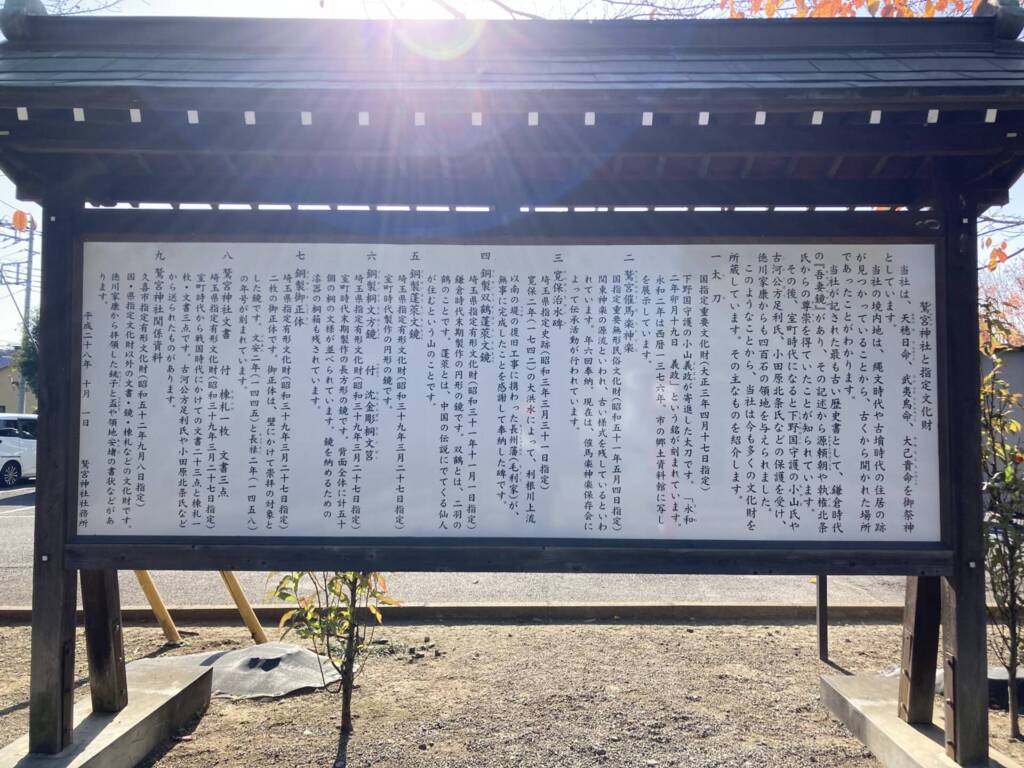 鷲宮神社と指定文化財
当社は、天穂日命、武夷鳥命、大己貴命を御祭神
としています。
当社の境内地は、縄文時代や古墳時代の住居の跡
が見つかっていることから、古くから開かれた場所
であったことがわかります。
当社が記された最も古い歴史書として、鎌倉時代
の「吾妻鏡」があり、その記述から源頼朝や執権北条
氏からの尊崇を得ていたことが知られています。
その後、室町時代になると下野国守護の小山氏や
古河公方足利氏、小田原北条氏などの保護を受け、
徳川家康からも四百石の領地を与えられました。
このようなことから、当社は今も多くの文化財を
所蔵しています。その主なものを紹介します。
一 太刀
国指定重要文化財(大正三年四月十七日指定)
下野国守護の小山義政が寄進した太刀です。「永和
二年卯月十九日 義政」という銘が刻まれています。
永和二年は西暦一三七六年、市の郷土資料館に写し
を展示しています。
二 鷲宮催馬楽神楽
国指定重要無形民俗文化財(昭和五十一年五月四日指定)
関東神楽の源流といわれ、古い様式を残しているといわ
れています。年六回奉納、現在は、催馬楽神楽保存会に
よって伝承活動が行われています。
三 寛保治水碑
埼玉県指定史跡(昭和三年三月三十一日指定)
寛保二年(一七四二)の大洪水によって、利根川上流
以南の堤の復旧工事に携わった長州藩(毛利家)が、
無事に完成したことを感謝して奉納した碑です。
四 銅製双鶴蓬萊文鏡
埼玉県指定有形文化財(昭和三十一年十一月一日指定)
鎌倉時代末期製作の円形の鏡です。双鶴とは、二羽の
鶴のことです。蓬萊とは、中国の伝説にでてくる仙人
が住むという山のことです。
五 銅製蓬萊文鏡
埼玉県指定有形文化財(昭和三十九年三月二十七日指定)
室町時代製作の円形の鏡です。
六 銅製桐文方鏡 付 沈金彫桐文筥
埼玉県指定有形文化財(昭和三十九年三月二十七日指定)
室町時代末期製作の長方形の鏡です。背面全体に計五十
個の桐の文様が並べられています。鏡を納めるための
漆器の桐箱も残されています。
七 銅製御正体
埼玉県指定有形文化財(昭和三十九年三月二十七日指定)
二枚の御正体です。御正体は、壁にかけて崇拝の対象と
した鏡です。文安二年(一四四五)と長禄二年(一四五八)
の年号が刻まれています。
八 鷲宮神社文書 付 棟札一枚 文書三点
埼玉県指定有形文化財(昭和三十九年三月二十七日指定)
室町時代から戦国時代にかけての文書二十三点と棟札一
枚・文書三点です。古河公方足利氏や小田原北条氏など
から送られたものがあります。
九 鷲宮神社関係資料
久喜市指定有形文化財(昭和五十二年九月八日指定)
国・県指定文化財以外の文書・鏡・棟札などの文化財です。
徳川家康から拝領した銚子と盃や領地安堵の書状などがあ
ります。
平成二十八年 十月 一日 鷲宮神社社務所